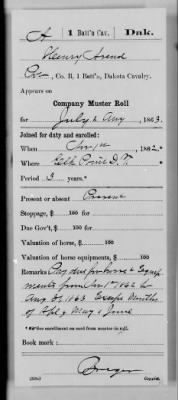 A | 1 Batt's Cav. | Dak.
Henry Arend
Pvt, Co. B, 1 Batt'n, Dakota Cavalry.
Appears on
Company Muster Roll
for July & Aug, 1863.
Joined for duty and enrolled:
When 1862.*
Where D.T.
Period 3 years.*
Present or absent Present
Stoppage, $ 100 for
Due Gov't, $ 100 for
Valuation of horse, $ 100
Valuation of horse equipments, $ 100
Remarks: Pay due for horse & Equip
ments from 1st 1862 to
Aug 31 1863 Except Months
of Apl, May & June
*See enrollment on card from muster-in roll.
Book mark:
Copyist.